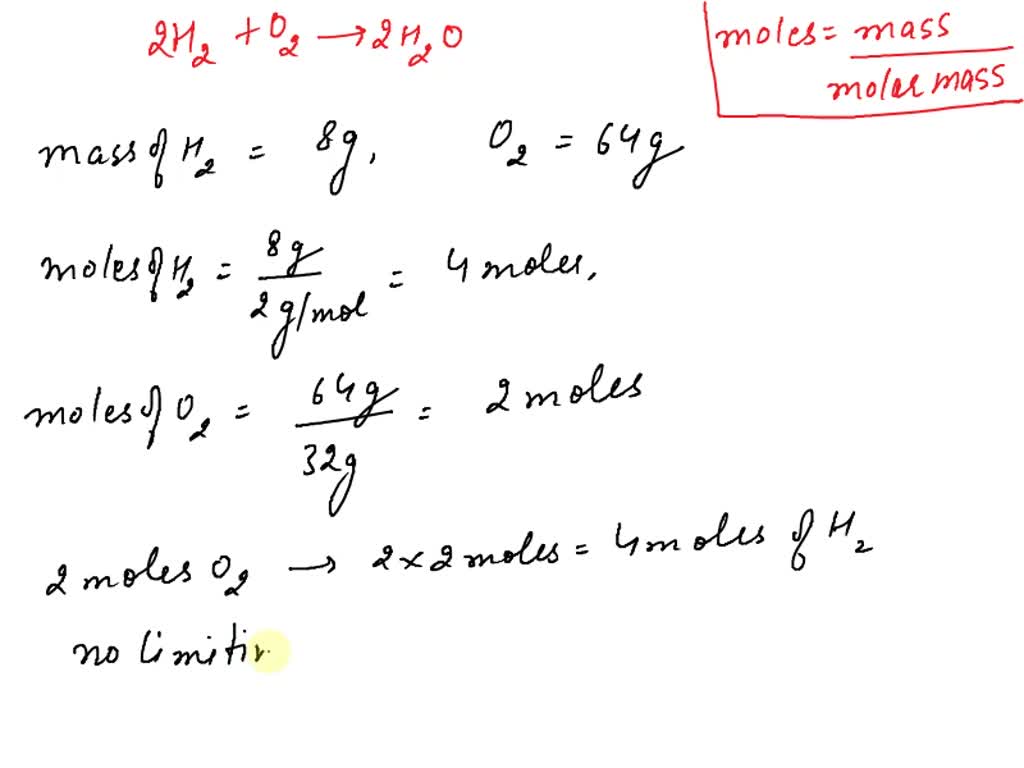 2H₂ + O₂ → 2H₂O
moles = mass / molar mass
mass of H₂ = 8g, O₂ = 64g
moles of H₂ = 8g / 2 g/mol = 4 moles,
moles of O₂ = 64g / 32g = 2 moles
2 moles O₂ → 2 × 2 moles = 4 moles of H₂
no limitin